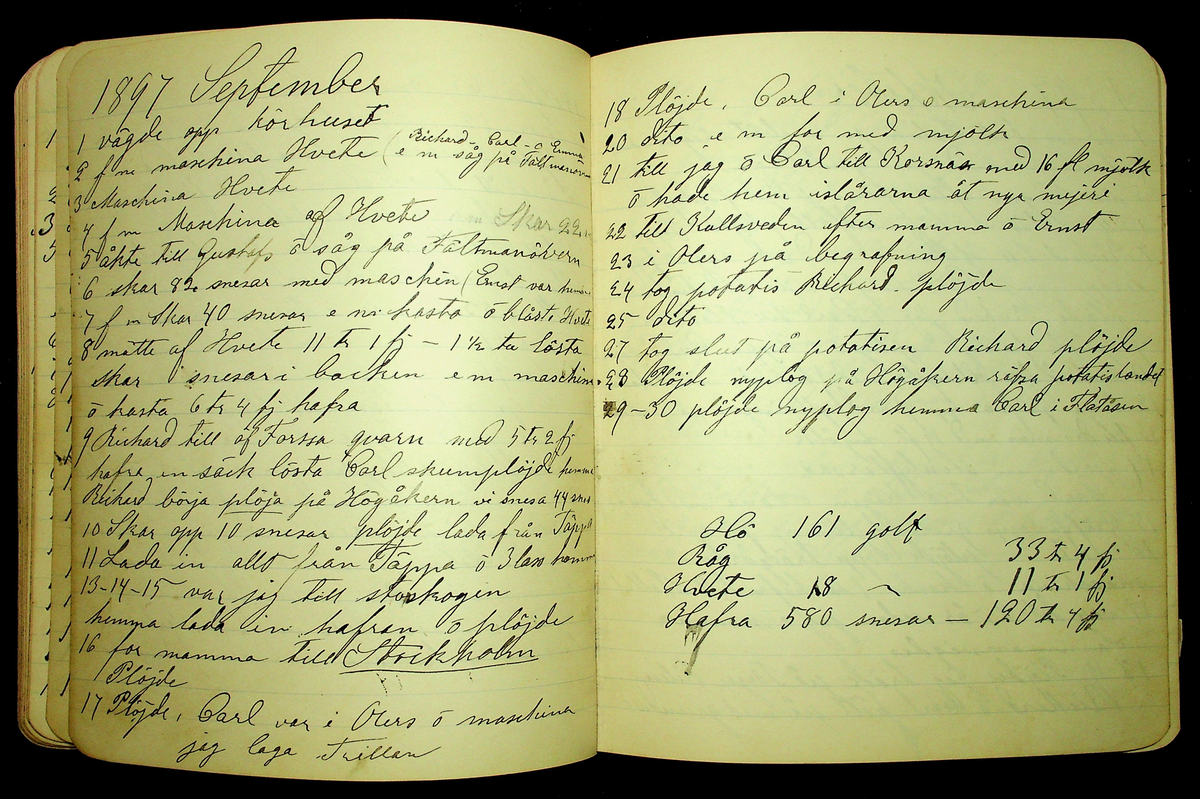 1897 September
1 vägde opp körhuset
2 f m maschina Hvete ( Richard - Carl - o Emma
e m såg på Fältmanöv
3 Maschina Hvete
4 f m Maschina af Hvete e m Skar 22
5 åkte till Gustafs ö såg på Fältmanövern
6 skar 82 snesar med maschin ( Ernst var hemma
7 f m Skar 40 snesar e m kasta ö blåste Hvete
8 mätte af Hvete 11 tr 1 fj - 1 1/2 tr lösta
skar snesar i backen e m maschin
ö kasta 6 tr 4 fj hafra
9 Richard till åf Forssa qvarn med 5 tr 2 fj
hafra en säck lösta Carl skumplöjde hemma
Richard börja plöja på Högåkern vi snesa 44 snes
10 Skar opp 10 snesar plöjde lada från Täppa
11 Lada in allt från Täppa ö 3 lass hemm
13-14-15 var jag till storskogen
hemma lada in hafran ö plöjde
16 for mamma till Stockholm
Plöjde
17 Plöjde, Carl var i Olers ö maschina
jag laga Trillan
18 Plöjde, Carl i Olers o maschina
20 dito e m for med mjölk
21 till jag ö Carl till Korsnäs med 16 fl mjölk
ö hade hem islårarna åt nya mejeri
22 till Kallsveden efter mamma ö Ernst
23 i Olers på begrafning
24 tog potatis Richard plöjde
25 dito
27 tog slut på potatisen Richard plöjde
28 Plöjde nyplog på Högåkern räfsa potatislandet
29-30 plöjde nyplog hemma Carl i Flatåsen
Hö 161 golf
Råg 33 tr 4 fj
Hvete 18 " 11 tr 1 fj
Hafra 580 snesar - 120 tr 4 fj